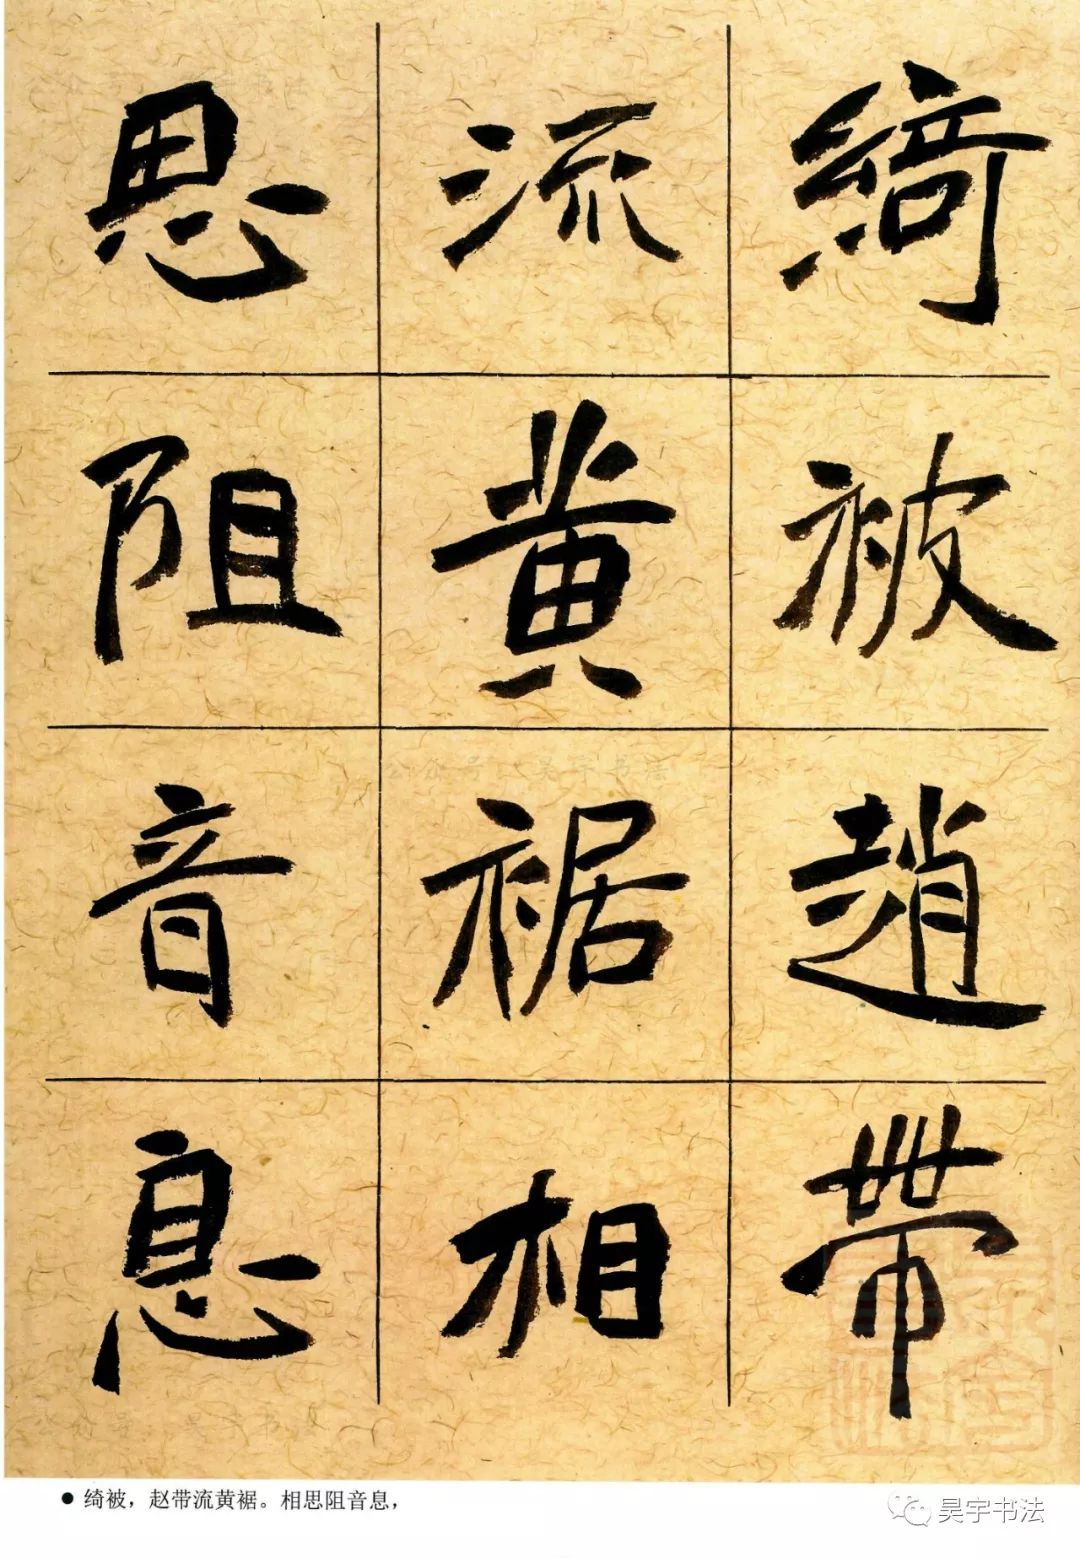 綺被趙帶
流黃裾相
思阻音息
公众号:昊宇书法
● 绮被，赵带流黄裾。相思阻音息，
昊宇书法